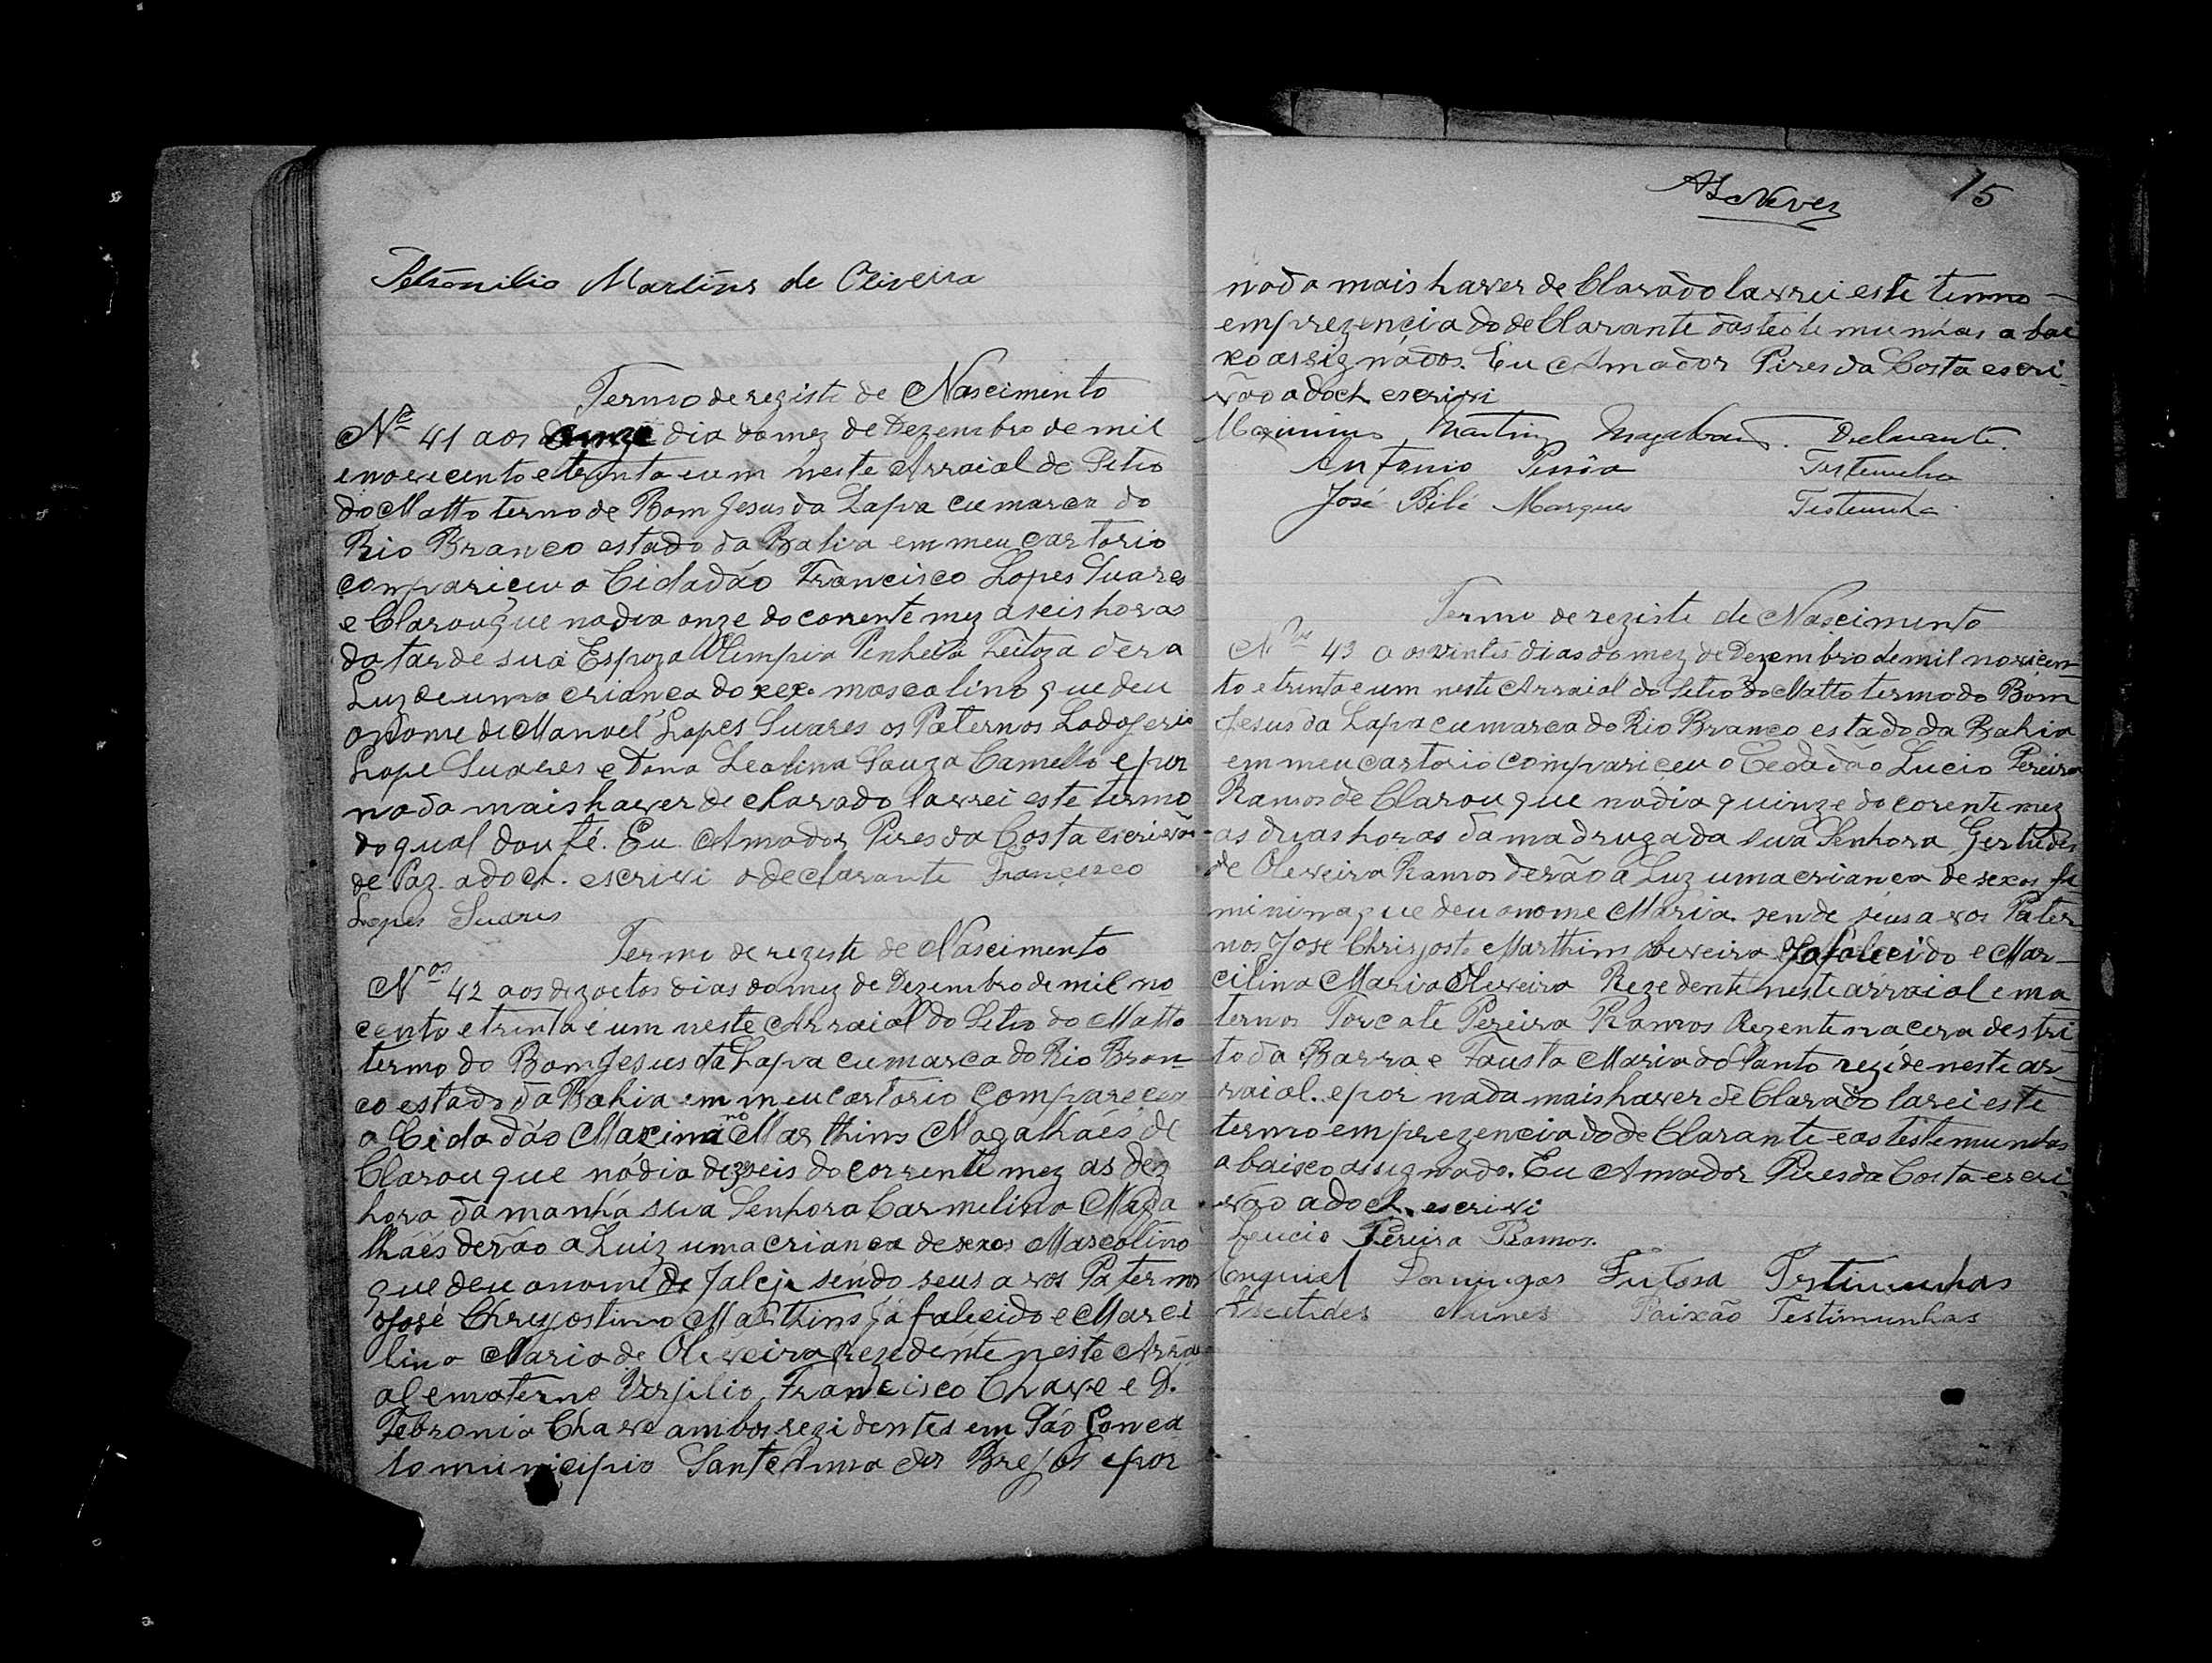 Petronilio Martins de Oliveira
Termo de registe de Nascimento
Nº 41 aos dia do mez de Dezembro de mil
e novicento e trinta eum neste Arraial de Sitio
do Matto termo de Bom Jesus da Lapa cumarca do
Rio Branco estado da Bahia em meu cartorio
compariçeu o Cidadão Francisco Lopes Suares
e Clarou que no dia onze do corrente mez a seis horas
da tarde sua Espoza Olimpia Pinheia Feitoza dera
Luz de uma criança do sex. mascolino que deu
o nome de Manoel Lopes Suares os Paternos Lodogerio
Lope Suares e Dona Leolina Souza Camello e por
nada mais haver de clarado lavrei este termo
do qual dou fé. Eu Amador Pires da Costa escrivão
de Paz adoch. escrivi o declarante Francisco
Lopes Suares
Termo de regeste de Nascimento
Nos 42 aos dezoetos dias do mez de Dezembro de mil no-
cento e trinta e um neste Arraial do Sitio do Matto
termo do Bom Jesus da Lapa cumarca do Rio Bran-
co estado da Bahia em meu cartorio Compareçeu
o Cidadão Maximiano Marthins Magalhaés de
Clarou que nódia dezeseis do corrente mez as dez
hora da manhá sua Senhora Carmilina Maga
lhaés derão a Luiz uma criança de sexos Mascolino
que deu o nome de Jalcy sendo seus avos Paternos
José Chrysostimo Marthins já falecido e Marci
lina Maria de Oliveira Rezedente neste Arrai
al e materne Verjilio Francisco Chave e D.
Febronia Chave ambos rezidentes em São Gonca
lo municipio Sant'Anna dos Brejos epor
ALNeves
15
nada mais haver de Clarado lavrei este termo
em prezencia do de Clarante das testemunhas abai
xo assignádos. Eu Amador Pires da Costa escri-
vão adoch escrivi
Maximino Martins Magalhães. Declarante.
Antonio Testemunha
José Marques Testemunha
Termo de registe de Nascimento
Nos 43 a os vintes dias do mez de Dezembro de mil novicen-
to e trinta e um neste Arraial do Sitio do Matto termo do Bom
Jesus da Lapa cumarca do Rio Branco estado da Bahia
em meu cartorio compariçeu o Cedadão Lucio Pereira
Ramos de Clarou que nodia quinze do corente mez
as duas horas da madrugada sua Senhora Gertudes
de Oleveira Ramos derão a Luz uma criança de sexos fe
minina que deu o nome Maria. sende seus avos Pater
nos José Chrisosto Marthins oliveira Jafalecido e Mar-
cilina Maria Oliveira Rezedente neste arraial e ma
ternos Torcate Pereira Ramos Rezente nacera destri
to da Barra e Fausta Maria do Santo rezide neste ar
raial. epor nada mais haver de Clarado larei este
termo em prezencia do de Clarante e as testemunhas
abaixo assignado. Eu Amador Pires da Costa escri-
vão adoch. escrivi
Lucio Pereira Ramos.
Ezequiel Domingos Feitosa Testimunhas
Nunes Paixão Testimunhas